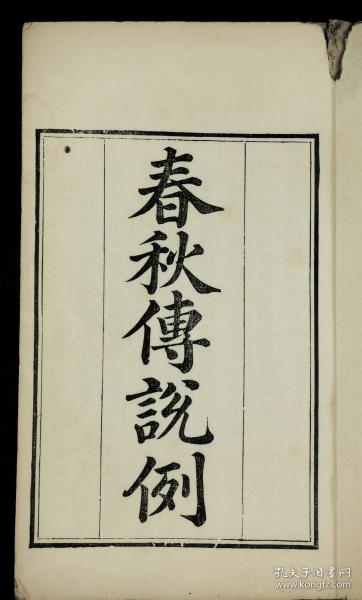 春秋傳說例
孔夫子旧书网
www.kongfz.com